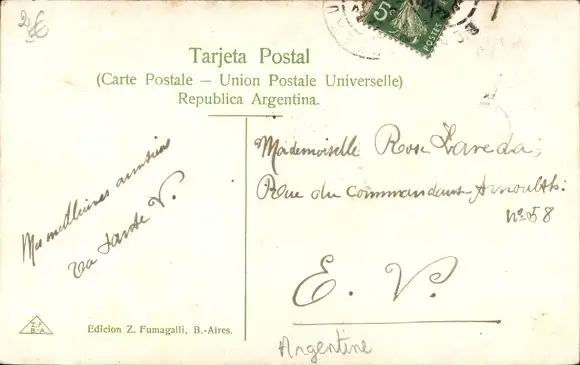 2€
5
POSTES
Tarjeta Postal
(Carte Postale – Union Postale Universelle)
Republica Argentina.
Mes meilleures amitiés
Ta tante V.
Mademoiselle Rose Lareda,
Rue du Commandant Arnoulth.
nº 58
E. V.
Argentine
Z. F.
B.-A.
Edicion Z. Fumagalli, B.-Aires.